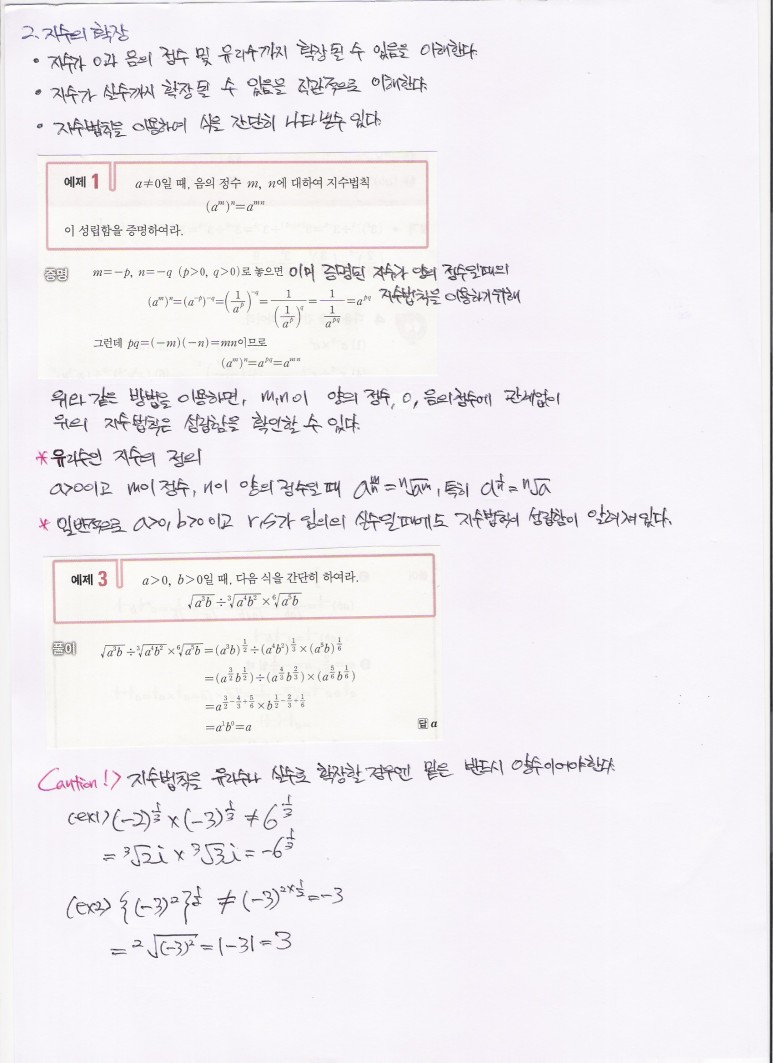 2. 지수의 확장
• 지수가 0과 음의 정수 및 유리수까지 확장 될 수 있음을 이해한다.
• 지수가 실수까지 확장될 수 있음을 직관적으로 이해한다.
• 지수법칙을 이용하여 식을 간단히 나타낼수 있다.
예제 1 a≠0일 때, 음의 정수 m, n에 대하여 지수법칙
(a^m)^n=a^{mn}
이 성립함을 증명하여라.
증명 m=-p, n=-q (p>0, q>0)로 놓으면 이미 증명된 지수가 양의 정수일때의
(a^m)^n=(a^{-p})^{-q}=(1/a^p)^{-q}=1/(1/a^p)^q=1/(1/a^{pq})=a^{pq} 지수법칙을 이용하기위해
그런데 pq=(-m)(-n)=mn이므로
(a^m)^n=a^{pq}=a^{mn}
위와 같은 방법을 이용하면, m,n이 양의 정수, 0, 음의정수에 관계없이
위의 지수법칙은 성립함을 확인할 수 있다.
* 유리수인 지수의 정의
a>0이고 m이 정수, n이 양의 정수일 때 a^{m/n}=ⁿ√a^m, 특히 a^{1/n}=ⁿ√a
* 일반적으로 a>0, b>0이고 r,s가 임의의 실수일때에도 지수법칙이 성립함이 알려져있다.
예제 3 a>0, b>0일 때, 다음 식을 간단히 하여라.
√(a³b)÷³√(a⁴b²)×⁶√(a⁵b)
풀이 √(a³b)÷³√(a⁴b²)×⁶√(a⁵b)=(a³b)^{1/2}÷(a⁴b²)^{1/3}×(a⁵b)^{1/6}
=(a^{3/2}b^{1/2})÷(a^{4/3}b^{2/3})×(a^{5/6}b^{1/6})
=a^{3/2-4/3+5/6}×b^{1/2-2/3+1/6}
=a¹b⁰=a 답 a
Caution!> 지수법칙을 유리수나 실수로 확장할 경우엔 밑은 반드시 양수이어야한다.
(ex1) (-2)^{1/2}×(-3)^{1/2}≠6^{1/2}
=²√2i×²√3i=-6^{1/2}
(ex2) {(-3)²}^{1/2}≠(-3)^{2×1/2}=-3
=²√(-3)²=|-3|=3